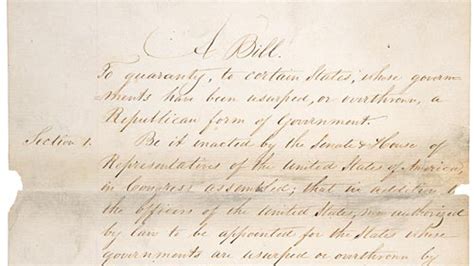 A Bill.
To guaranty, to certain States, whose govern-
ments have been usurped, or overthrown, a
Republican form of Government.
Section 1. Be it enacted by the Senate & House of
Representatives of the United States of America,
in Congress assembled; that in addition
the officers of the United States, now authorized
by law to be appointed for the States whose
governments are usurped or overthrown by